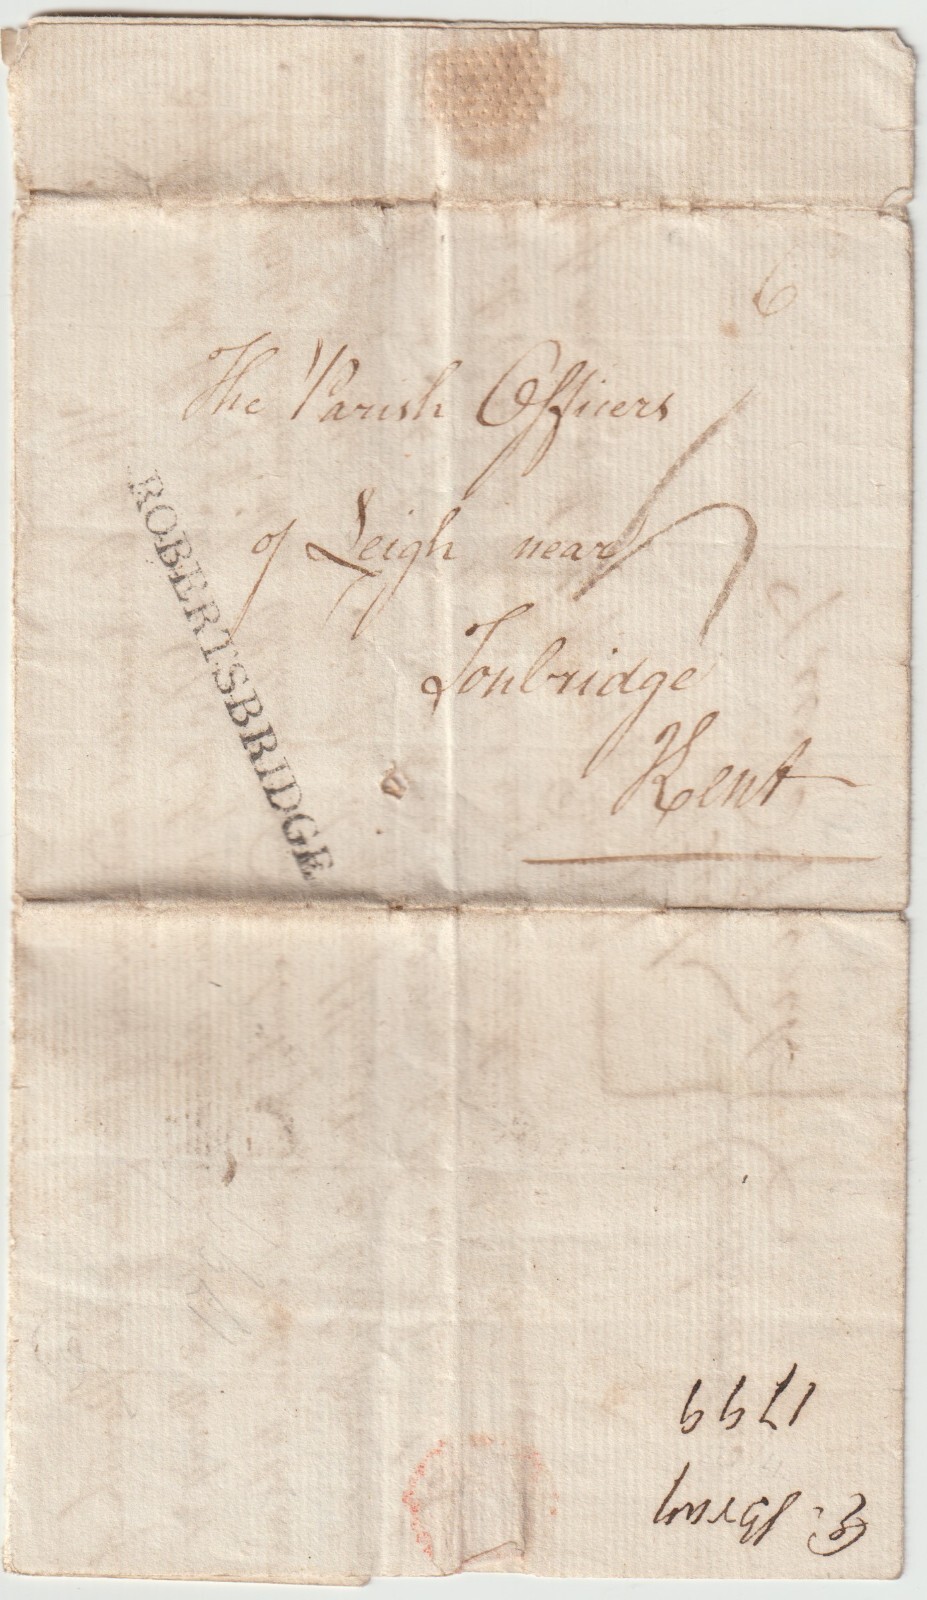 6
The Parish Officers
of Leigh near
Tonbridge
Kent
ROBERTSBRIDGE
1799